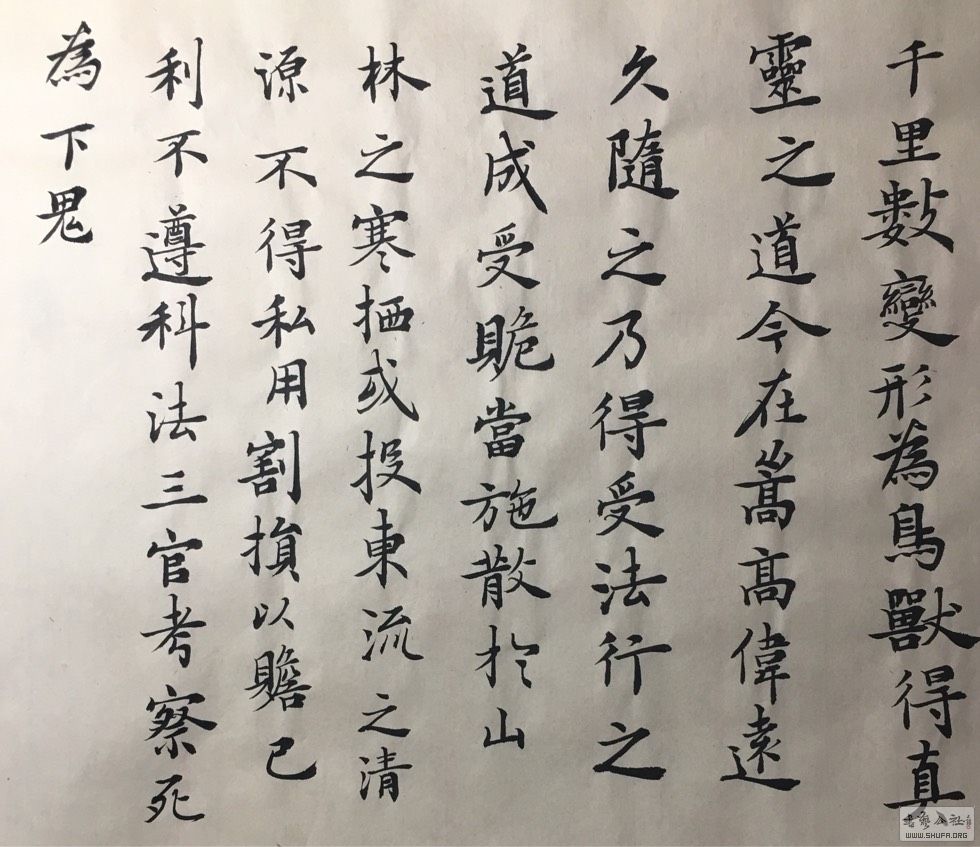 千里數變形為鳥獸得真
靈之道今在嵩高偉遠
久隨之乃得受法行之
道成受賝當施散於山
林之寒栖或投東流之清
源不得私用割損以贍己
利不遵科法三官考察死
為下鬼
WWW.SHUFA.ORG